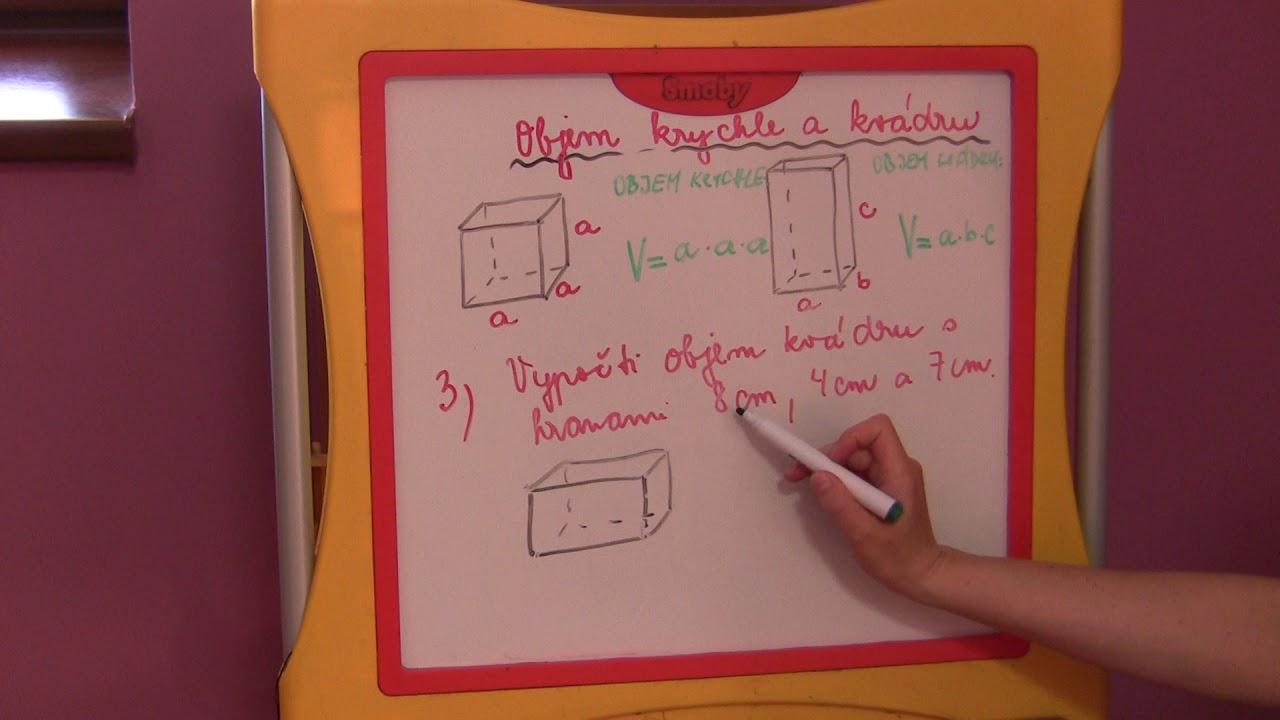 Smoby
Objem krychle a kvádru
OBJEM KRYCHLE
V = a · a · a
a
a
a
OBJEM KVÁDRU:
V = a · b · c
c
b
a
3) Vypočti objem kvádru s
hranami 8 cm, 4 cm a 7 cm.